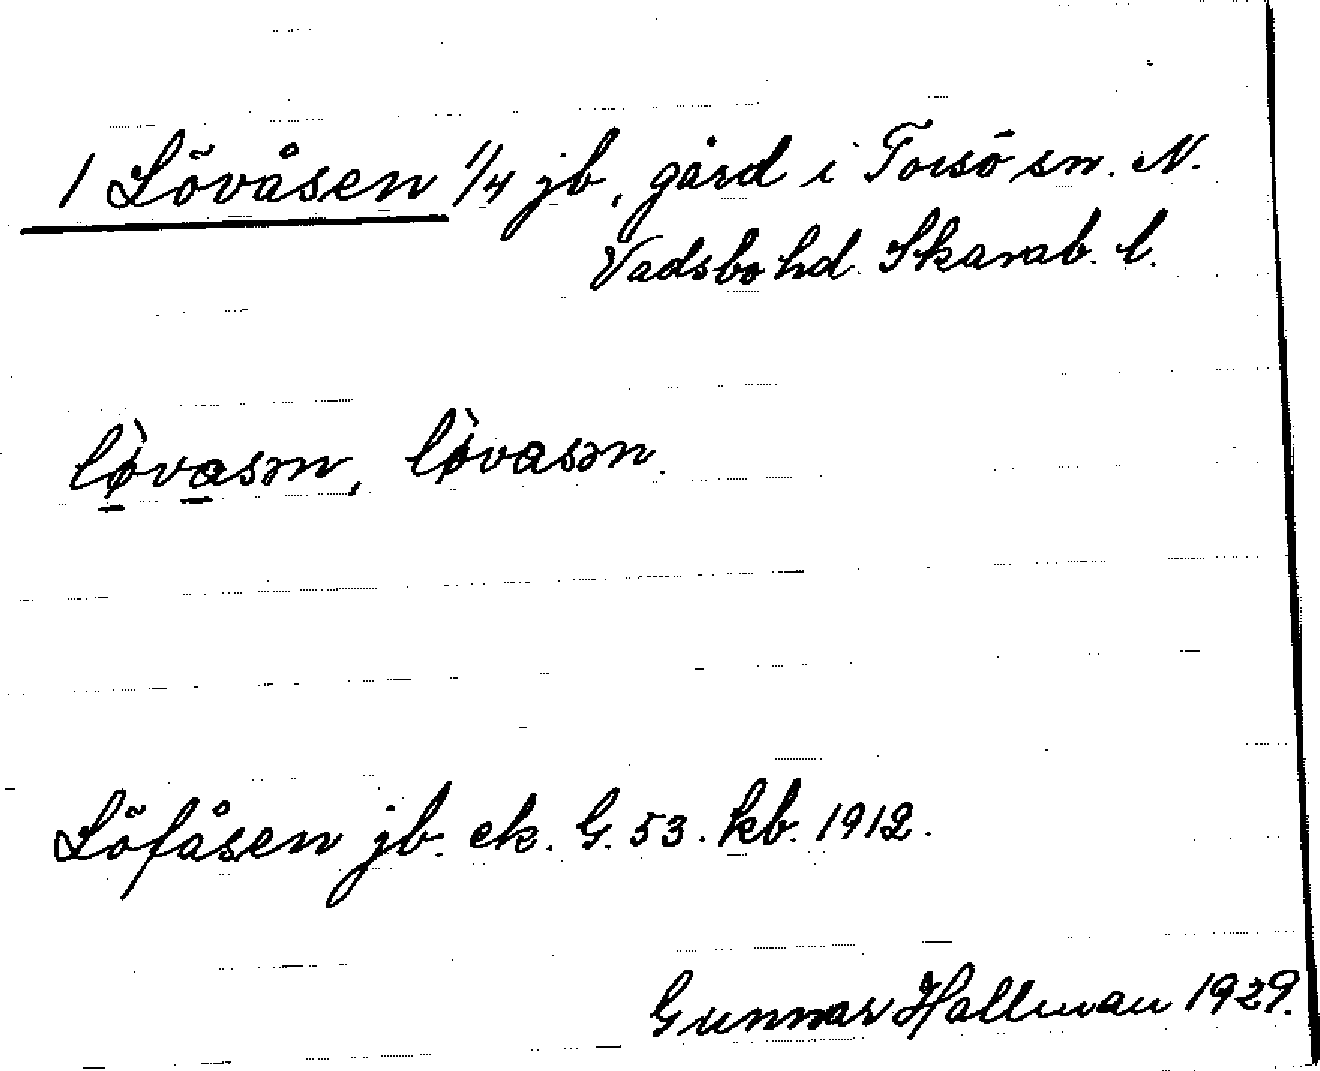 1 Lövåsen 1/4 jb, gård i Torsö sn. N.
Vadsbo hd. Skarab. l.
lø̀vasən, lø̀vasən.
Löfåsen jb. ek. G. 53. kb. 1912.
Gunnar Hallman 1929.